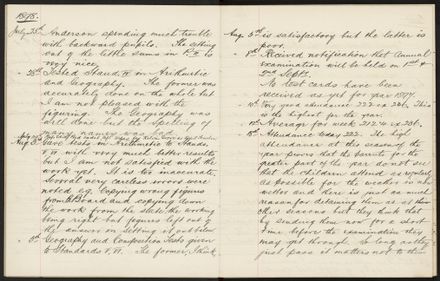 1898.
July 25th Anderson spending much trouble
with backward pupils. The setting
out of the little sums in St. II is
very nice.
28th Tested Stand. IV in Arithmetic
and Geography. The former was
accurately done on the whole but
I am not pleased with the
figuring. The Geography was
well done but the spelling of
many names was bad.
Aug 3rd Gave Tests in Arithmetic to Stands.
V, VI with very much better results
but I am not satisfied with the
work yet. It is too inaccurate.
Several very careless errors were
noted e.g. Copying wrong figures
from B.Board and copying down
the work from the slate the working
being right but figures left out of
the answer on setting it out below.
5th Geography and Composition Tests given
to Standards V, VI. The former, I think,
Aug. 5th is satisfactory but the latter is
poor.
8th Received notification that Annual
examination will be held on 1st &
2nd Sept.
No test cards have been
received as yet for year 1898.
10th Very good attendance 222 ex 246. This
is the highest for the year.
12th Average for week 212.4 ex 246.
15th Attendance today 222. The high
attendance at this season of the
year proves that the parents for the
greater part of the year do not see
that the children attend as regularly
as possible for the weather is no
better and there is just as much
reason for detaining them as at other
seasons but they think that
by sending them now for a short
time before the examination they
may get through. So long as they
just pass it matters not to them